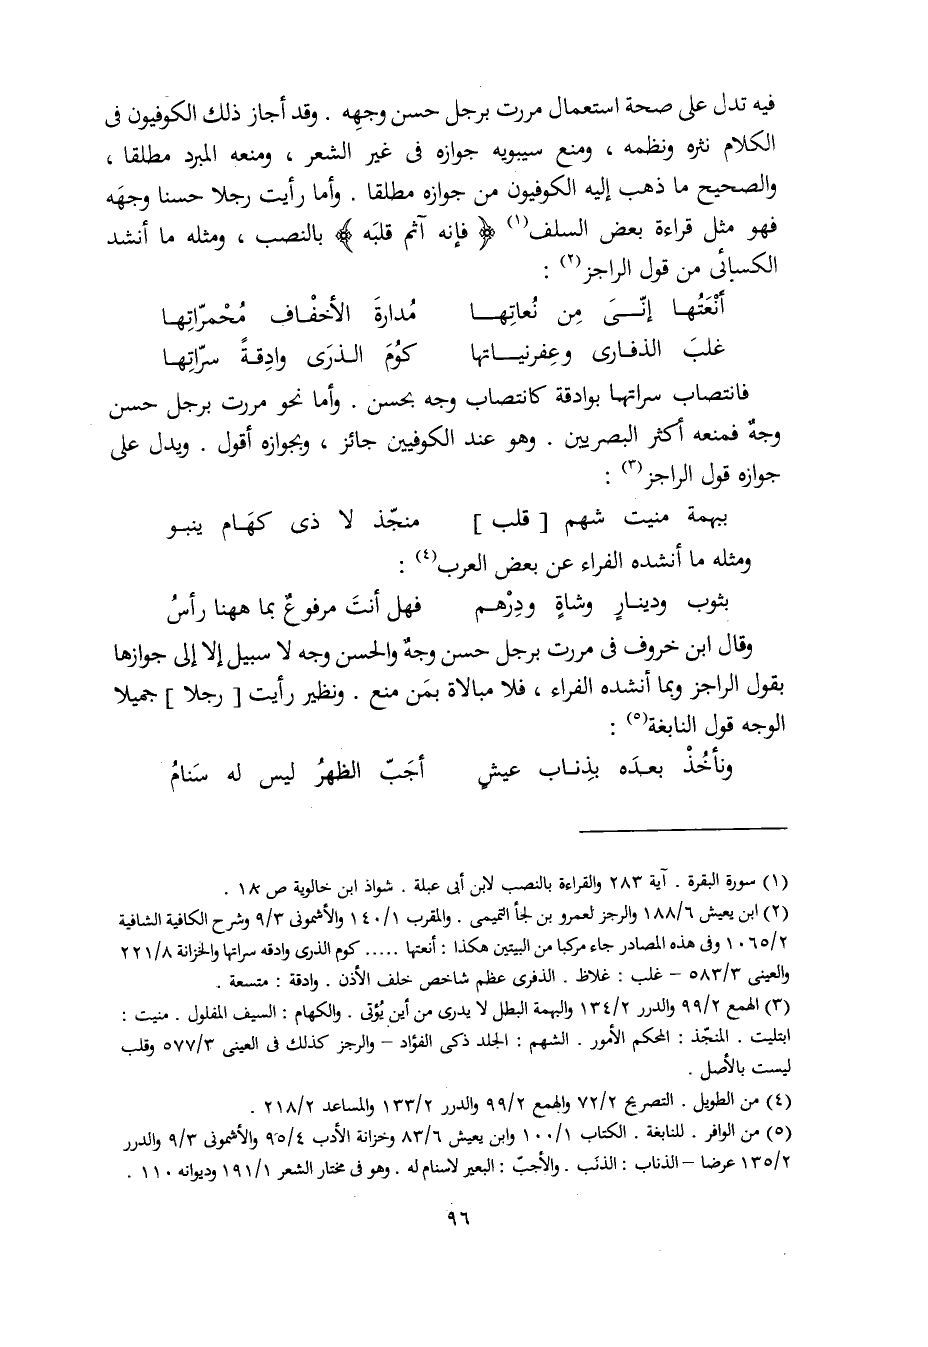 فيه تدل على صحة استعمال مررت برجل حسن وجهِه . وقد أجاز ذلك الكوفيون فى
الكلام نثره ونظمه ، ومنع سيبويه جوازه فى غير الشعر ، ومنعه المبرد مطلقا ،
والصحيح ما ذهب إليه الكوفيون من جوازه مطلقا . وأما رأيت رجلا حسنا وجهَه
فهو مثل قراءة بعض السلف(١) ﴿ فإنه آثم قلبَه ﴾ بالنصب ، ومثله ما أنشد
الكسائى من قول الراجز(٢) :
أَنْعَتُها إنّـــىَ مِن نُعاتِهـــا مُدارةَ الأخفْـاف مُحْمرّاتِهـا
غلبَ الذفـارى وعِفرنيـــاتها كوُمَ الـذرَى وادِقـةً سرّاتِهـا
فانتصاب سراتها بوادقة كانتصاب وجه بحسن . وأما نحو مررت برجل حسن
وجهٌ فمنعه أكثر البصريين . وهو عند الكوفيين جائز ، وبجوازه أقول . ويدل على
جوازه قول الراجز(٣) :
ببهمة منيت شهم [ قلب ] منجّذ لا ذى كهَـام ينبـو
ومثله ما أنشده الفراء عن بعض العرب(٤) :
بثوب ودينـارٍ وشاةٍ ودِرْهـم فهل أنتَ مرفوعٌ بما ههنا رأسُ
وقال ابن خروف فى مررت برجل حسن وجهٌ والحسن وجه لا سبيل إلا إلى جوازها
بقول الراجز وبما أنشده الفراء ، فلا مبالاة بمَن منع . ونظير رأيت [ رجلا ] جميلا
الوجه قول النابغة(٥) :
ونأخُذْ بعـدَه بذِنـاب عيشٍ أجَبّ الظهرُ ليس له سَنامُ
(١) سورة البقرة . آية ٢٨٣ والقراءة بالنصب لابن أبى عبلة . شواذ ابن خالوية ص ١٨ .
(٢) ابن يعيش ١٨٨/٦ والرجز لعمرو بن لجأ التميمى . والمقرب ١٤٠/١ والأشمونى ٩/٣ وشرح الكافية الشافية
١٠٦٥/٢ وفى هذه المصادر جاء مركبا من البيتين هكذا : أنعتها ..... كوم الذرى وادقه سراتها والخزانة ٢٢١/٨
والعينى ٥٨٣/٣ – غلب : غلاظ . الذفرى عظم شاخص خلف الأذن . وادقة : متسعة .
(٣) الهمع ٩٩/٢ والدرر ١٣٤/٢ والبهمة البطل لا يدرى من أين يُؤتى . والكهام : السيف المفلول . منيت :
ابتليت . المنجّذ : المحكم الأمور . الشهم : الجلد ذكى الفؤاد – والرجز كذلك فى العينى ٥٧٧/٣ وقلب
ليست بالأصل .
(٤) من الطويل . التصريح ٧٢/٢ والهمع ٩٩/٢ والدرر ١٣٣/٢ والمساعد ٢١٨/٢ .
(٥) من الوافر . للنابغة . الكتاب ١٠٠/١ وابن يعيش ٨٣/٦ وخزانة الأدب ٩٥/٤ والأشمونى ٩/٣ والدرر
١٣٥/٢ عرضا – الذناب : الذنَب . والأجبّ : البعير لاسنام له . وهو فى مختار الشعر ١٩١/١ وديوانه ١١٠ .
٩٦